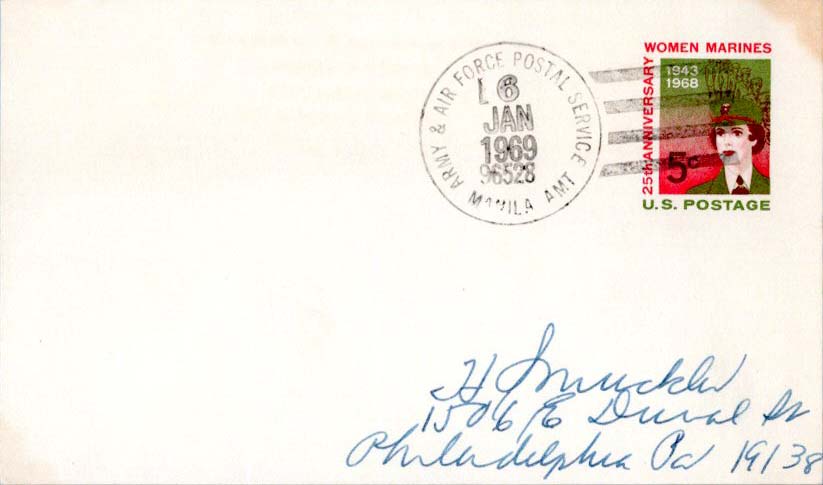 ARMY & AIR FORCE POSTAL SERVICE
L 6
JAN
1969
96528
MANILA AMT
WOMEN MARINES
1943
1968
25th ANNIVERSARY
5c
U.S. POSTAGE
H Smuckler
1506 E Duval St
Philadelphia Pa 19138